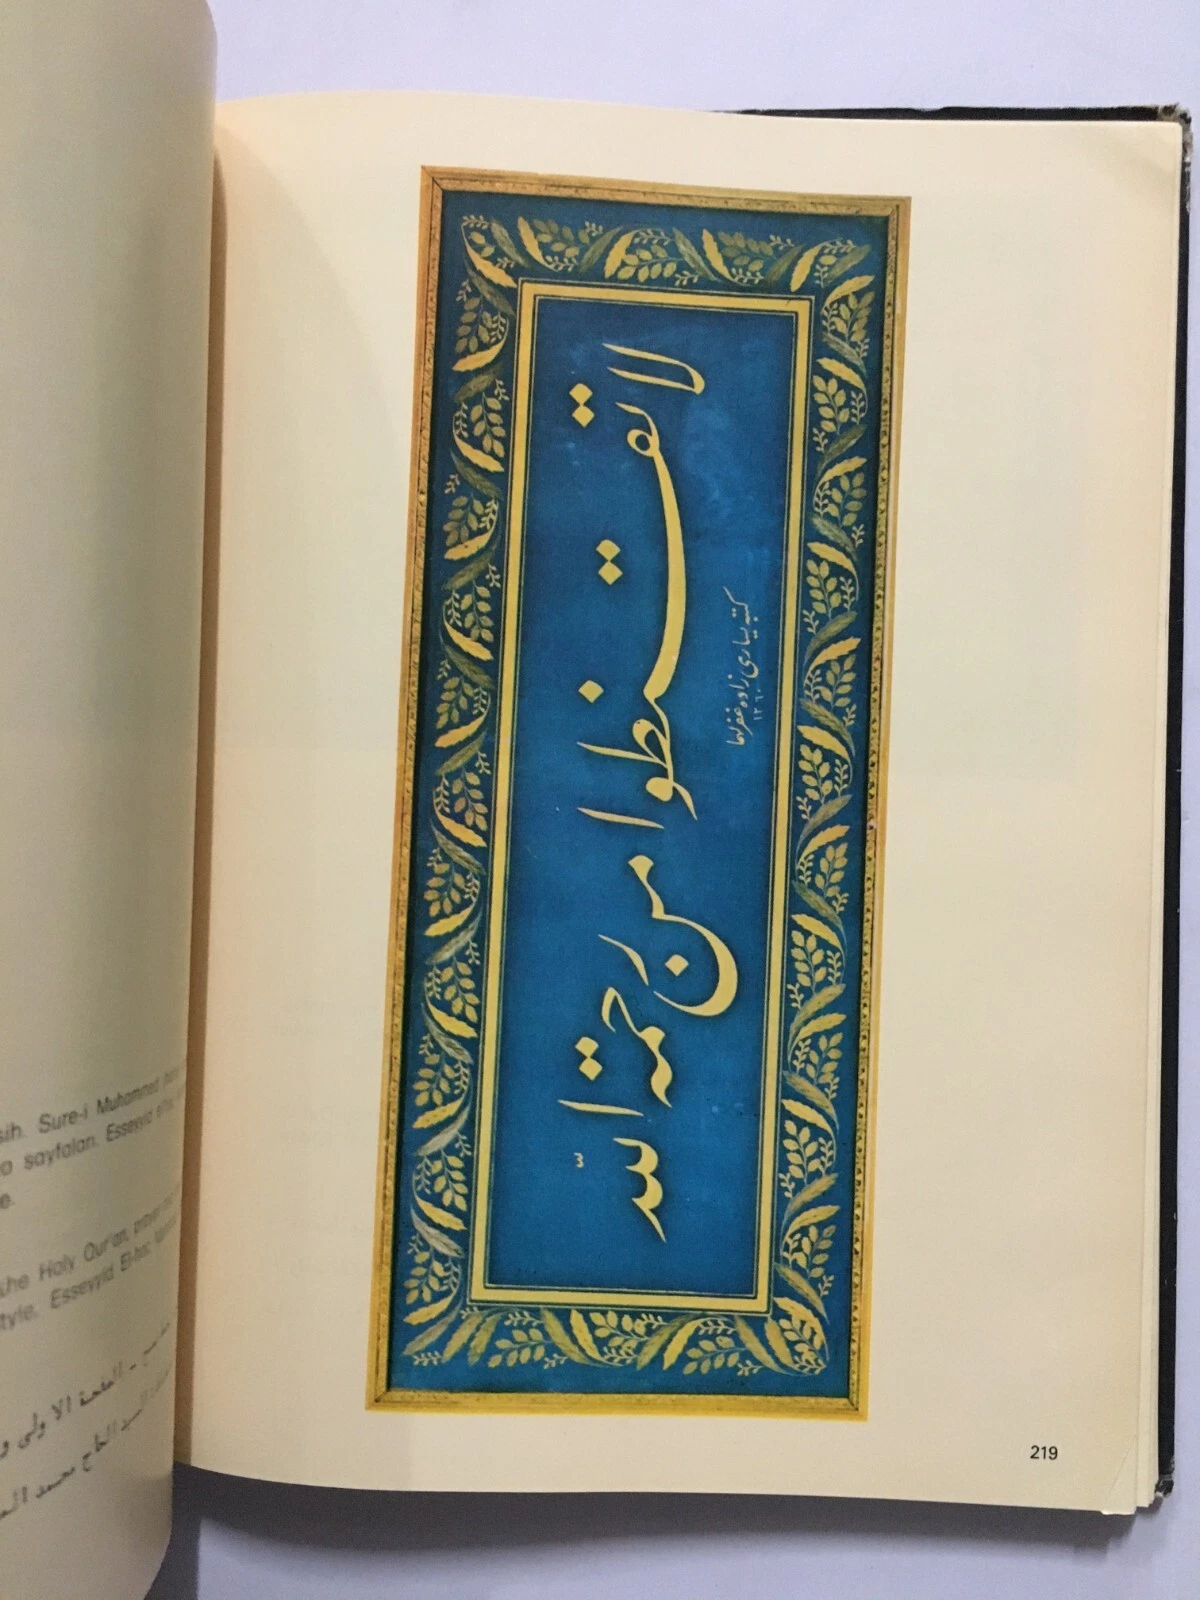 sih. Sure-i Muhammed
sayfaları. Esseyyid
e.
the Holy Qur'an,
style. Esseyyid El-hac
الصفحة الاولى و
السيد الحاج محمد
لا تقنطوا من رحمة الله
كتبه يساري زاده غفر لهما
219